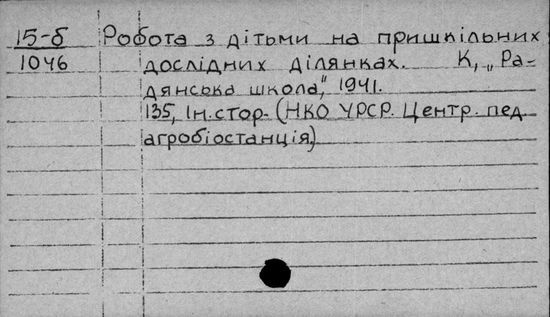 15-б Робота з дітьми на пришкільних
1046 дослідних ділянках. К, „Ра-
дянська школа", 1941.
135, Iн.стор. (НКО УРСР. Центр. пед
агробіостанція)